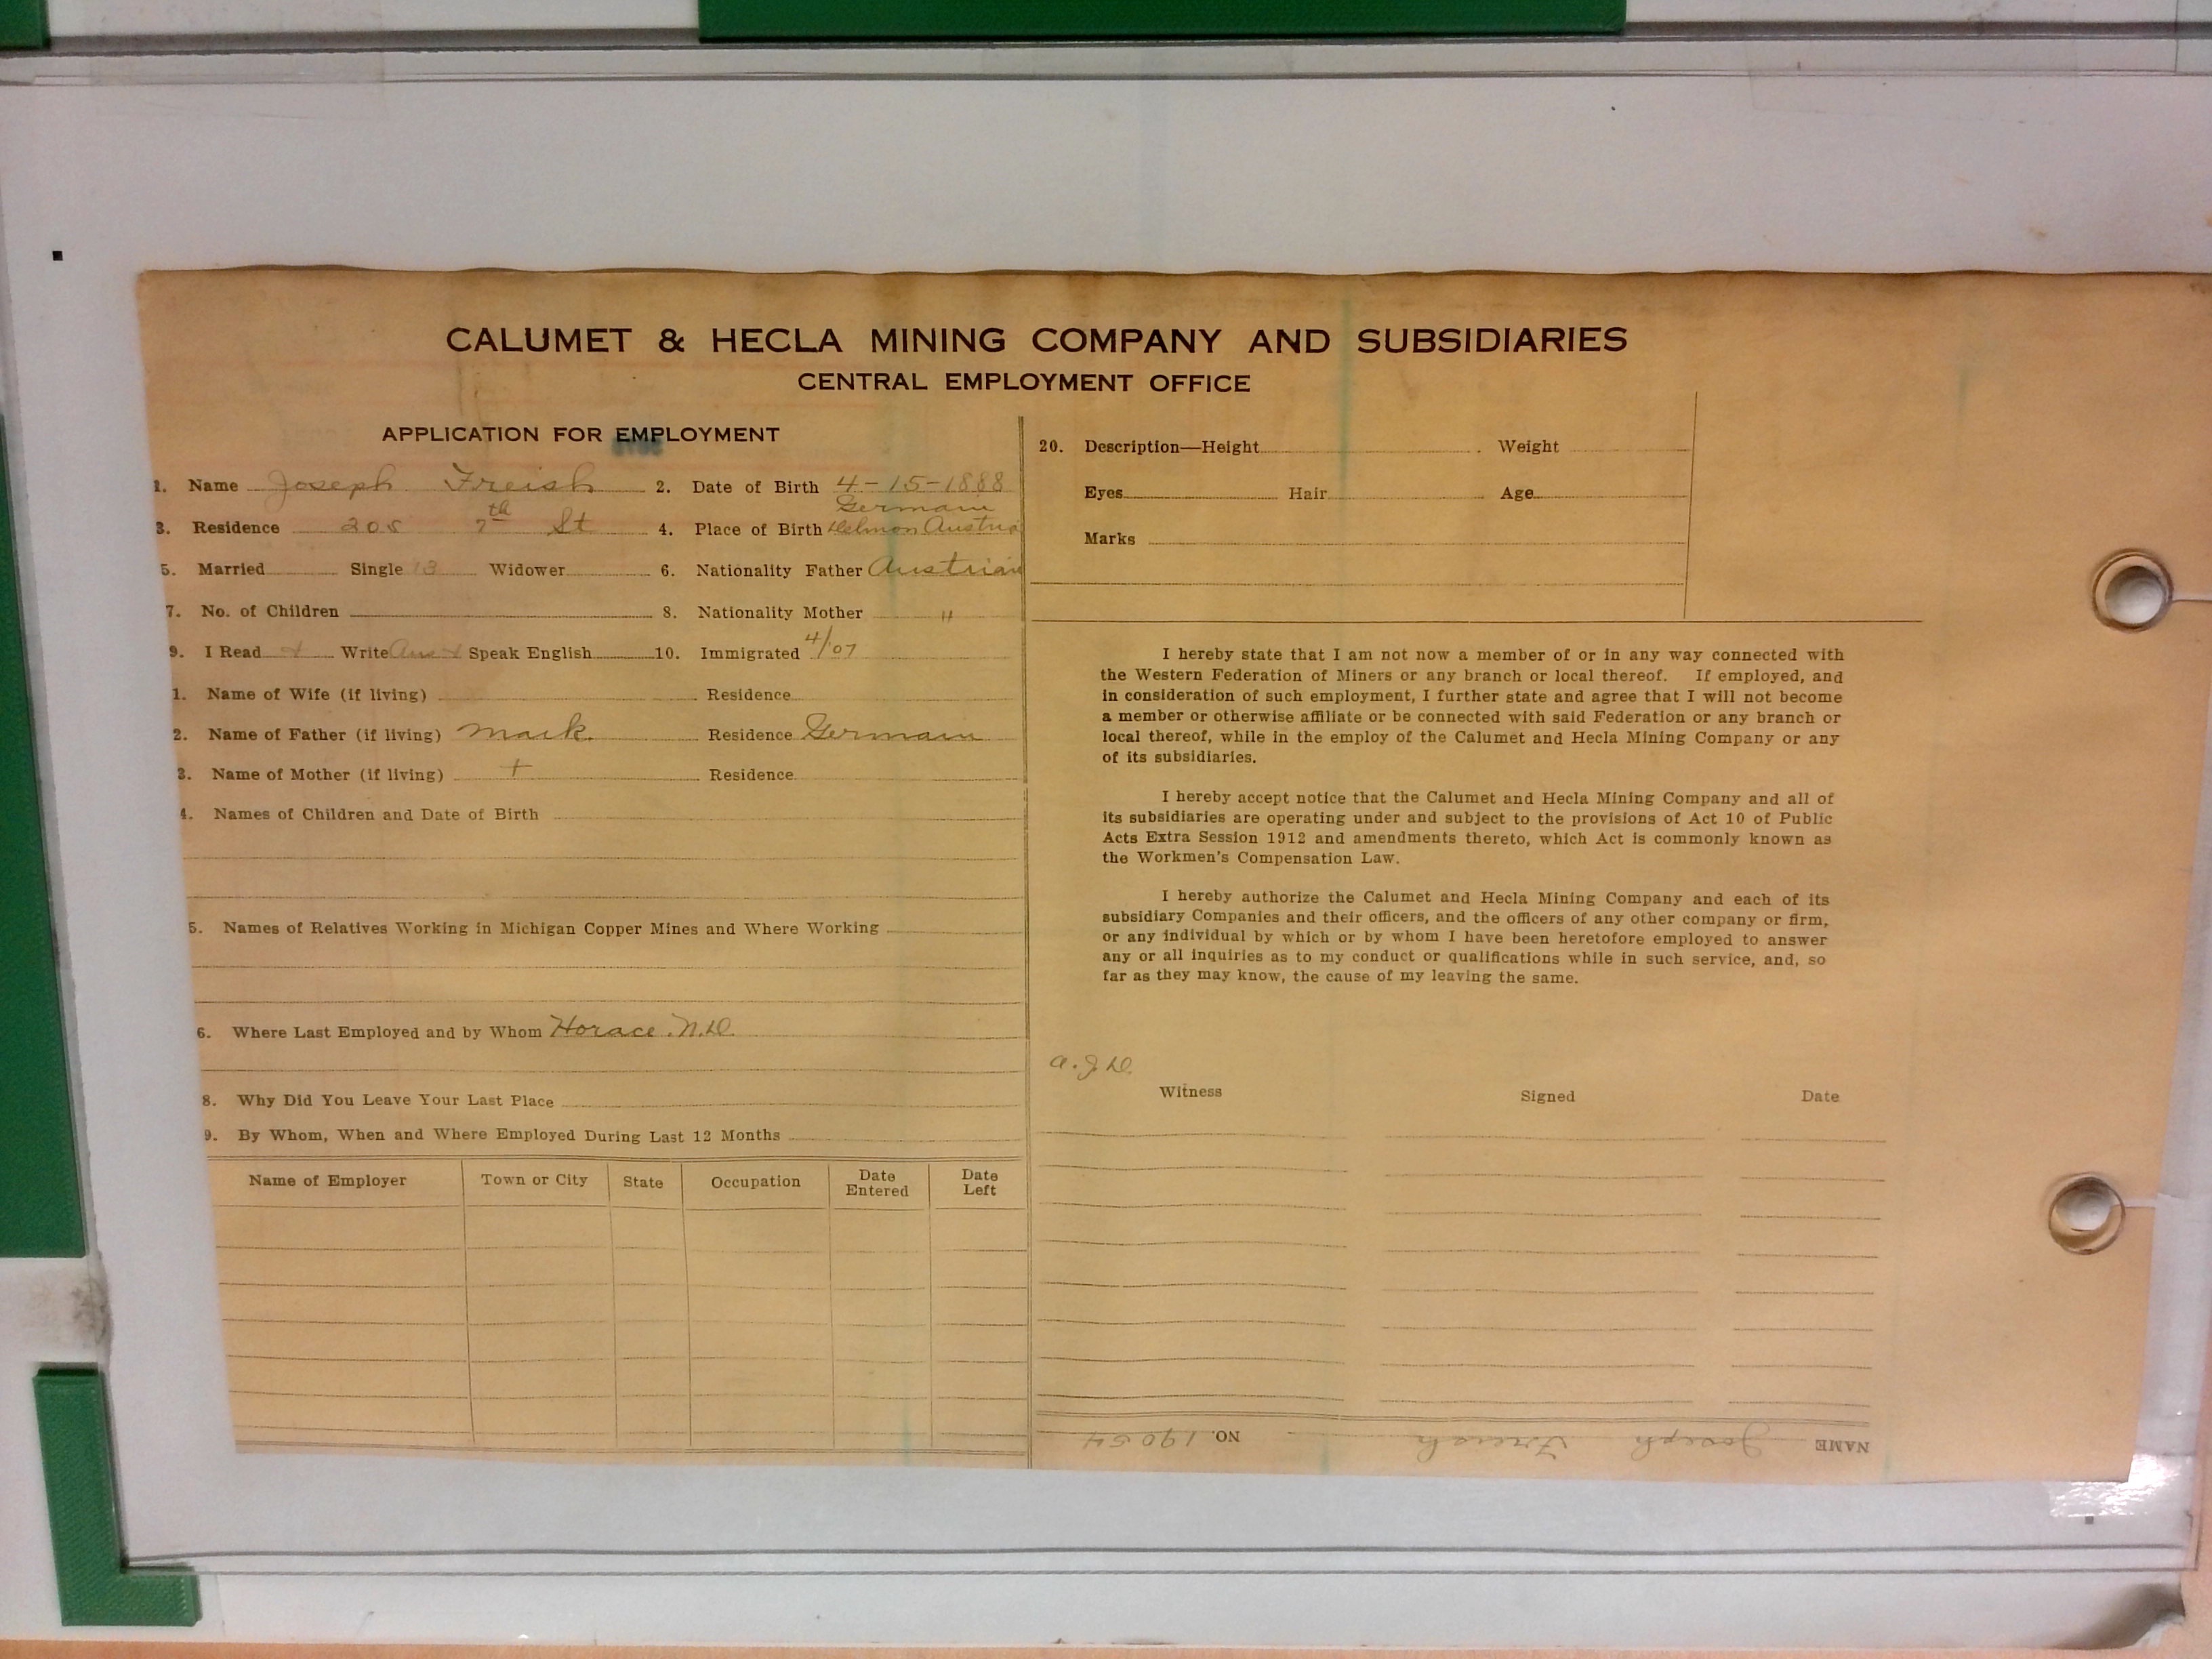 CALUMET & HECLA MINING COMPANY AND SUBSIDIARIES
CENTRAL EMPLOYMENT OFFICE
APPLICATION FOR EMPLOYMENT
1. Name Joseph Freish 2. Date of Birth 4-15-1888
German
3. Residence 205 7th St 4. Place of Birth Austria
5. Married Single 13 Widower 6. Nationality Father Austrian
7. No. of Children 8. Nationality Mother "
9. I Read + Write Aus + Speak English 10. Immigrated 4/07
1. Name of Wife (if living) Residence
2. Name of Father (if living) Mark Residence German
3. Name of Mother (if living) + Residence
4. Names of Children and Date of Birth
5. Names of Relatives Working in Michigan Copper Mines and Where Working
6. Where Last Employed and by Whom Horace. N.D.
8. Why Did You Leave Your Last Place
9. By Whom, When and Where Employed During Last 12 Months
Name of Employer Town or City State Occupation Date Entered Date Left
20. Description—Height Weight
Eyes Hair Age
Marks
I hereby state that I am not now a member of or in any way connected with
the Western Federation of Miners or any branch or local thereof. If employed, and
in consideration of such employment, I further state and agree that I will not become
a member or otherwise affiliate or be connected with said Federation or any branch or
local thereof, while in the employ of the Calumet and Hecla Mining Company or any
of its subsidiaries.
I hereby accept notice that the Calumet and Hecla Mining Company and all of
its subsidiaries are operating under and subject to the provisions of Act 10 of Public
Acts Extra Session 1912 and amendments thereto, which Act is commonly known as
the Workmen's Compensation Law.
I hereby authorize the Calumet and Hecla Mining Company and each of its
subsidiary Companies and their officers, and the officers of any other company or firm,
or any individual by which or by whom I have been heretofore employed to answer
any or all inquiries as to my conduct or qualifications while in such service, and, so
far as they may know, the cause of my leaving the same.
A.J.D.
Witness Signed Date
NAME Joseph Freish NO. 19054